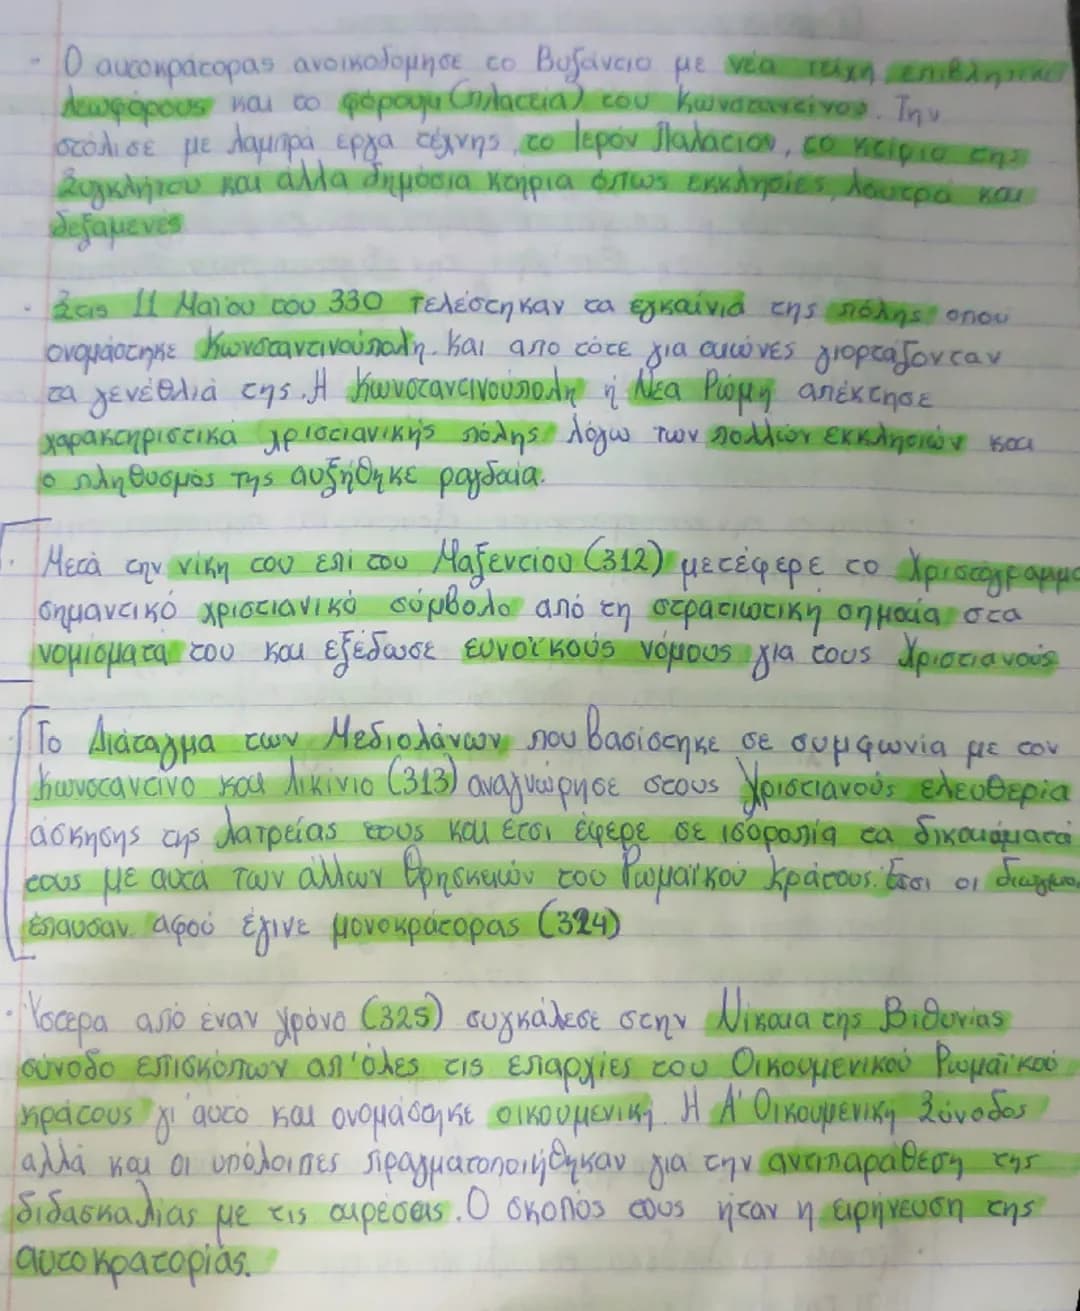 - Ο αυτοκράτορας ανοικοδόμησε το Βυζάντιο με νέα τείχη, επιβλητικές
λεωφόρους και το φόρουμ (πλατεία) του Κωνσταντίνου. Την
στόλισε με λαμπρά εργα τέχνης, το Ιερόν Παλάτιον, το κτίριο της
Συγκλήτου και άλλα δημόσια κτήρια όπως εκκλησίες, λουτρά και
δεξαμενές
· Στις 11 Μαΐου του 330 τελέστηκαν τα εγκαίνιά της πόλης οπου
ονομάστηκε Κωνσταντινούπολη. Και απο τότε για αιώνες γιορτάζονταν
τα γενέθλιά της. Η Κωνσταντινούπολη ή Νέα Ρώμη απέκτησε
χαρακτηριστικά χριστιανικής πόλης λόγω των πολλών εκκλησιών και
ο πληθυσμός της αυξήθηκε ραγδαία.
· Μετά την νίκη του επί του Μαξεντίου (312) μετέφερε το Χριστόγραμμα
σημαντικό χριστιανικό σύμβολο από τη στρατιωτική σημαία στα
νομίσματά του και εξέδωσε ευνοϊκούς νόμους για τους Χριστιανούς
· Το Διάταγμα των Μεδιολάνων που βασίστηκε σε συμφωνία με τον
Κωνσταντίνο και Λικίνιο (313) αναγνώρησε στους Χριστιανούς ελευθερία
άσκησης της λατρείας τους και έτσι έφερε σε ισοροπία τα δικαιώματά
τους με αυτά των άλλων θρησκειών του Ρωμαϊκού κράτους. Ετσι οι διωγμοί
έπαυσαν αφού έγινε μονοκράτορας (324)
· Υστερα από έναν χρόνο (325) συγκάλεσε στην Νίκαια της Βιθυνίας
σύνοδο επισκόπων απ' όλες τις επαρχίες του Οικουμενικού Ρωμαϊκού
κράτους γι' αυτό και ονομάστηκε οικουμενική. Η Α' Οικουμενική Σύνοδος
αλλά και οι υπόλοιπες πραγματοποιήθηκαν για την αντιπαράθεση της
διδασκαλίας με τις αιρέσεις. Ο σκοπός τους ήταν η ειρήνευση της
αυτοκρατορίας.